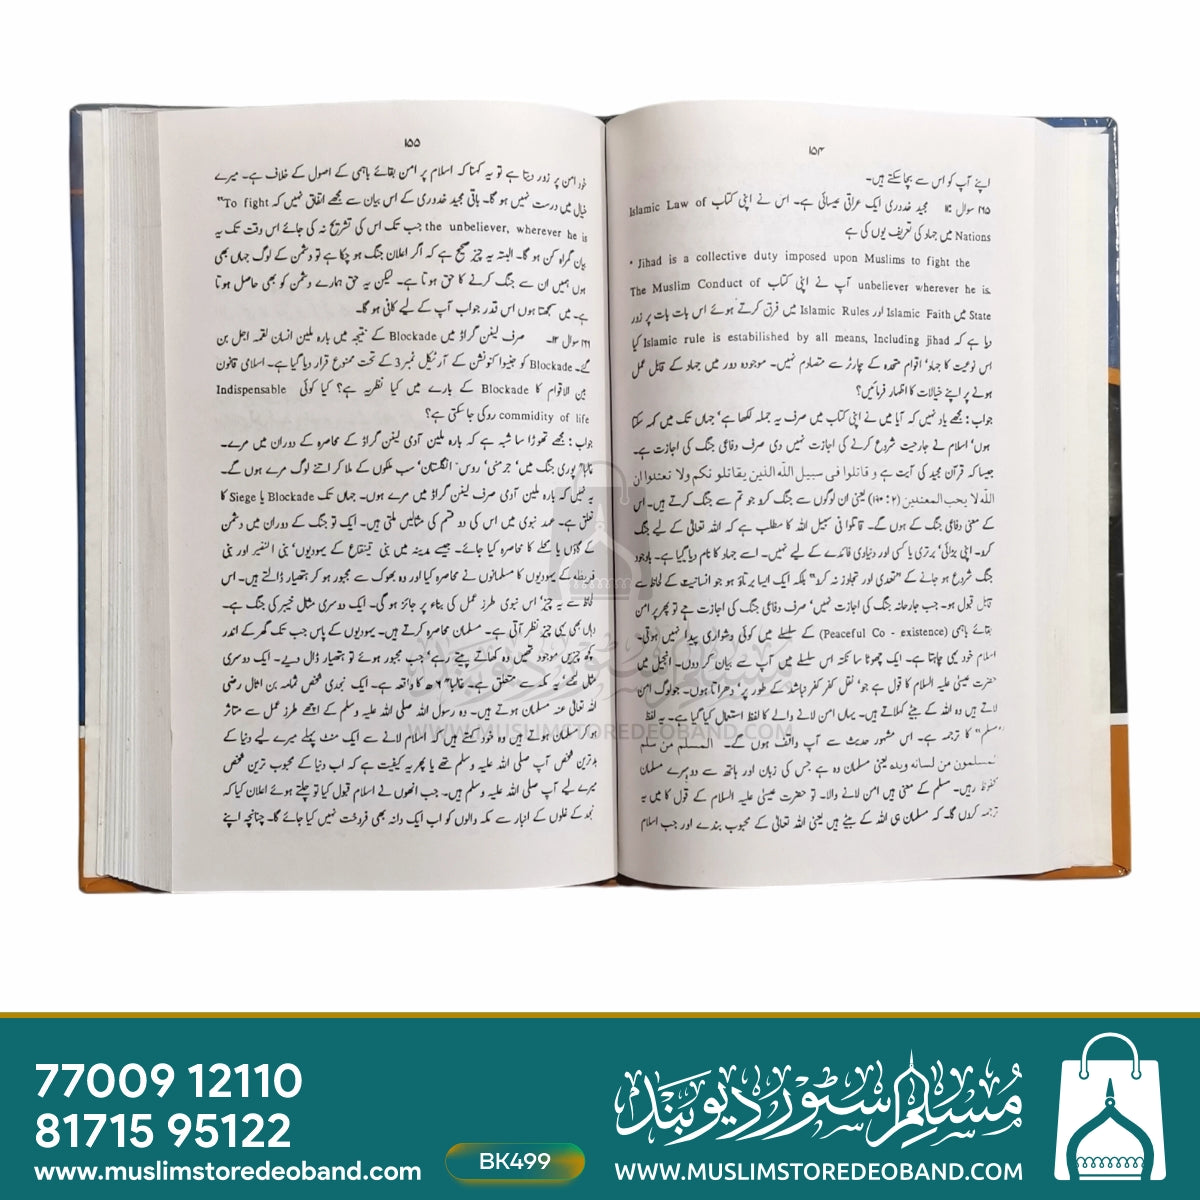 ۱۵۴
اپنے آپ کو اس سے بچا سکتے ہیں۔
۲۶۵ سوال ۱۲: مجید خدوری ایک عراقی عیسائی ہے۔ اس نے اپنی کتاب Islamic Law of
Nations میں جہاد کی تعریف یوں کی ہے
" Jihad is a collective duty imposed upon Muslims to fight the
unbeliever wherever he is. آپ نے اپنی کتاب The Muslim Conduct of
State میں Islamic Faith اور Islamic Rules میں فرق کرتے ہوئے اس بات پر زور
دیا ہے کہ Islamic rule is estabilished by all means, Including jihad کیا
اس نوعیت کا جہاد' اقوام متحدہ کے چارٹر سے متصادم نہیں۔ موجودہ دور میں جہاد کے قابل عمل
ہونے پر اپنے خیالات کا اظہار فرمائیں؟
جواب: مجھے یاد نہیں کہ آیا میں نے اپنی کتاب میں صرف یہ جملہ لکھا ہے' جہاں تک میں کہہ سکتا
ہوں' اسلام نے جارحیت شروع کرنے کی اجازت نہیں دی صرف دفاعی جنگ کی اجازت ہے۔
جیسا کہ قرآن مجید کی آیت ہے و قاتلوا فی سبیل اللّٰہ الذین یقاتلونکم ولا تعتدوا ان
اللّٰہ لا یحب المعتدین (۲:۱۹۰) یعنی ان لوگوں سے جنگ کرو جو تم سے جنگ کرتے ہیں۔ اس
کے معنی دفاعی جنگ کے ہوں گے۔ قاتلوا فی سبیل اللہ کا مطلب ہے کہ اللہ تعالیٰ کے لیے جنگ
کرو۔ اپنی بڑائی' برتری یا کسی اور دنیاوی فائدے کے لیے نہیں۔ اسے جہاد کا نام دیا گیا ہے۔ باوجود
جنگ شروع ہو جانے کے "تعدی اور تجاوز نہ کرو" بلکہ ایک ایسا برتاؤ ہو جو انسانیت کے لحاظ سے
قابل قبول ہو۔ جب جارحانہ جنگ کی اجازت نہیں' صرف دفاعی جنگ کی اجازت ہے تو پھر پر امن
بقائے باہمی (Peaceful Co - existence) کے سلسلے میں کوئی دشواری پیدا نہیں ہوتی۔
اسلام خود یہی چاہتا ہے۔ ایک چھوٹا سا نکتہ اس سلسلے میں آپ سے بیان کر دوں۔ انجیل میں
حضرت عیسیٰ علیہ السلام کا قول ہے جو' نقل کفر کفر نباشد کے طور پر' دھراتا ہوں۔ جو لوگ امن
لاتے ہیں وہ اللہ کے بیٹے کہلاتے ہیں۔ یہاں امن لانے والے کا لفظ استعمال کیا گیا ہے۔ یہ لفظ
"مسلم" کا ترجمہ ہے۔ اس مشہور حدیث سے آپ واقف ہوں گے۔ المسلم من سلم
المسلمون من لسانہ ویدہ یعنی مسلمان وہ ہے جس کی زبان اور ہاتھ سے دوسرے مسلمان
محفوظ رہیں۔ مسلم کے معنی ہیں امن لانے والا۔ تو حضرت عیسیٰ علیہ السلام کے قول کا میں یہ
ترجمہ کروں گا۔ کہ مسلمان ہی اللہ کے بیٹے ہیں یعنی اللہ تعالیٰ کے محبوب بندے اور جب اسلام
۱۵۵
خود امن پر زور دیتا ہے تو یہ کہنا کہ اسلام پر امن بقائے باہمی کے اصول کے خلاف ہے۔ میرے
خیال میں درست نہیں ہو گا۔ باقی مجید خدوری کے اس بیان سے مجھے اتفاق نہیں کہ "To fight
the unbeliever, wherever he is جب تک اس کی تشریح نہ کی جائے اس وقت تک یہ
بیان گمراہ کن ہو گا۔ البتہ یہ چیز صحیح ہے کہ اگر اعلان جنگ ہو چکا ہے تو دشمن کے لوگ جہاں بھی
ہوں ہمیں ان سے جنگ کرنے کا حق ہوتا ہے۔ لیکن یہ حق ہمارے دشمن کو بھی حاصل ہوتا
ہے۔ میں سمجھتا ہوں اس قدر جواب آپ کے لیے کافی ہو گا۔
۲۶۶ سوال ۱۳۔ صرف لینن گراڈ میں Blockade کے نتیجہ میں بارہ ملین انسان لقمہ اجل بن
گئے۔ Blockade کو جنیوا کنونشن کے آرٹیکل نمبر 3 کے تحت ممنوع قرار دیا گیا ہے۔ اسلامی قانون
بین الاقوام کا Blockade کے بارے میں کیا نظریہ ہے؟ کیا کوئی Indispensable
commidity of life روکی جا سکتی ہے؟
جواب: مجھے تھوڑا سا شبہ ہے کہ بارہ ملین آدمی لینن گراڈ کے محاصرہ کے دوران میں مرے۔
غالبا" پوری جنگ میں' جرمنی' روس' انگلستان' سب ملکوں کے ملا کر اتنے لوگ مرے ہوں گے۔
یہ نہیں کہ بارہ ملین آدمی صرف لینن گراڈ میں مرے ہوں۔ جہاں تک Blockade یا Siege کا
تعلق ہے۔ عہد نبوی میں اس کی دو قسم کی مثالیں ملتی ہیں۔ ایک تو جنگ کے دوران میں دشمن
کے گاؤں یا محلے کا محاصرہ کیا جائے۔ جیسے مدینہ میں بنی قینقاع کے یہودیوں' بنی النضیر اور بنی
قریظہ کے یہودیوں کا مسلمانوں نے محاصرہ کیا اور وہ بھوک سے مجبور ہو کر ہتھیار ڈالتے ہیں۔ اس
لحاظ سے یہ چیز' اس نبوی طرز عمل کی بناء پر جائز ہو گی۔ ایک دوسری مثال خیبر کی جنگ ہے۔
وہاں بھی یہی چیز نظر آتی ہے۔ مسلمان محاصرہ کرتے ہیں۔ یہودیوں کے پاس جب تک گھر کے اندر
کچھ چیزیں موجود تھیں وہ کھاتے پیتے رہے' جب مجبور ہوئے تو ہتھیار ڈال دیے۔ ایک دوسری
مثال مجھے' یہ مکہ سے متعلق ہے۔ غالبا" ۶ھ کا واقعہ ہے۔ ایک نجدی شخص ثمامہ بن اثال رضی
اللہ تعالیٰ عنہ مسلمان ہوتے ہیں۔ وہ رسول اللہ صلی اللہ علیہ وسلم کے اچھے طرز عمل سے متاثر
ہو کر مسلمان ہوئے ہیں وہ خود کہتے ہیں کہ اسلام لانے سے ایک منٹ پہلے میرے لیے دنیا کے
بدترین شخص آپ صلی اللہ علیہ وسلم تھے یا پھر یہ کیفیت ہے کہ اب دنیا کے محبوب ترین شخص
میرے لیے آپ صلی اللہ علیہ وسلم ہیں۔ جب انھوں نے اسلام قبول کیا تو چلتے ہوئے اعلان کیا کہ
نجد کے غلوں کے انبار سے مکہ والوں کو اب ایک دانہ بھی فروخت نہیں کیا جائے گا۔ چنانچہ اپنے
مسلم سٹور دیوبند
WWW.MUSLIMSTOREDEOBAND.COM
77009 12110
81715 95122
www.muslimstoredeoband.com
BK499
مسلم سٹور دیوبند
WWW.MUSLIMSTOREDEOBAND.COM